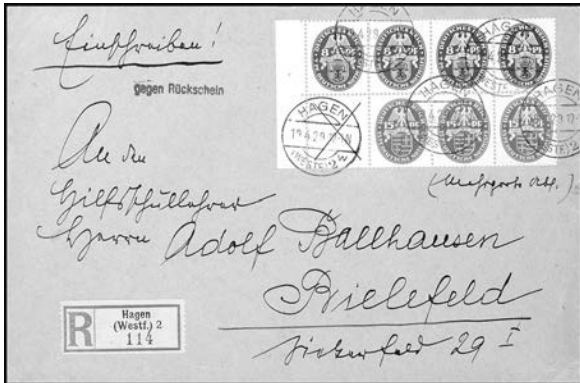 Einschreiben!
gegen Rückschein
HAGEN
19.4.29
(WESTF.) 2
An den
Hilfsschullehrer
Herrn Adolf Ballhausen
Bielefeld
Siekerfeld 29 I
R
Hagen
(Westf.) 2
114